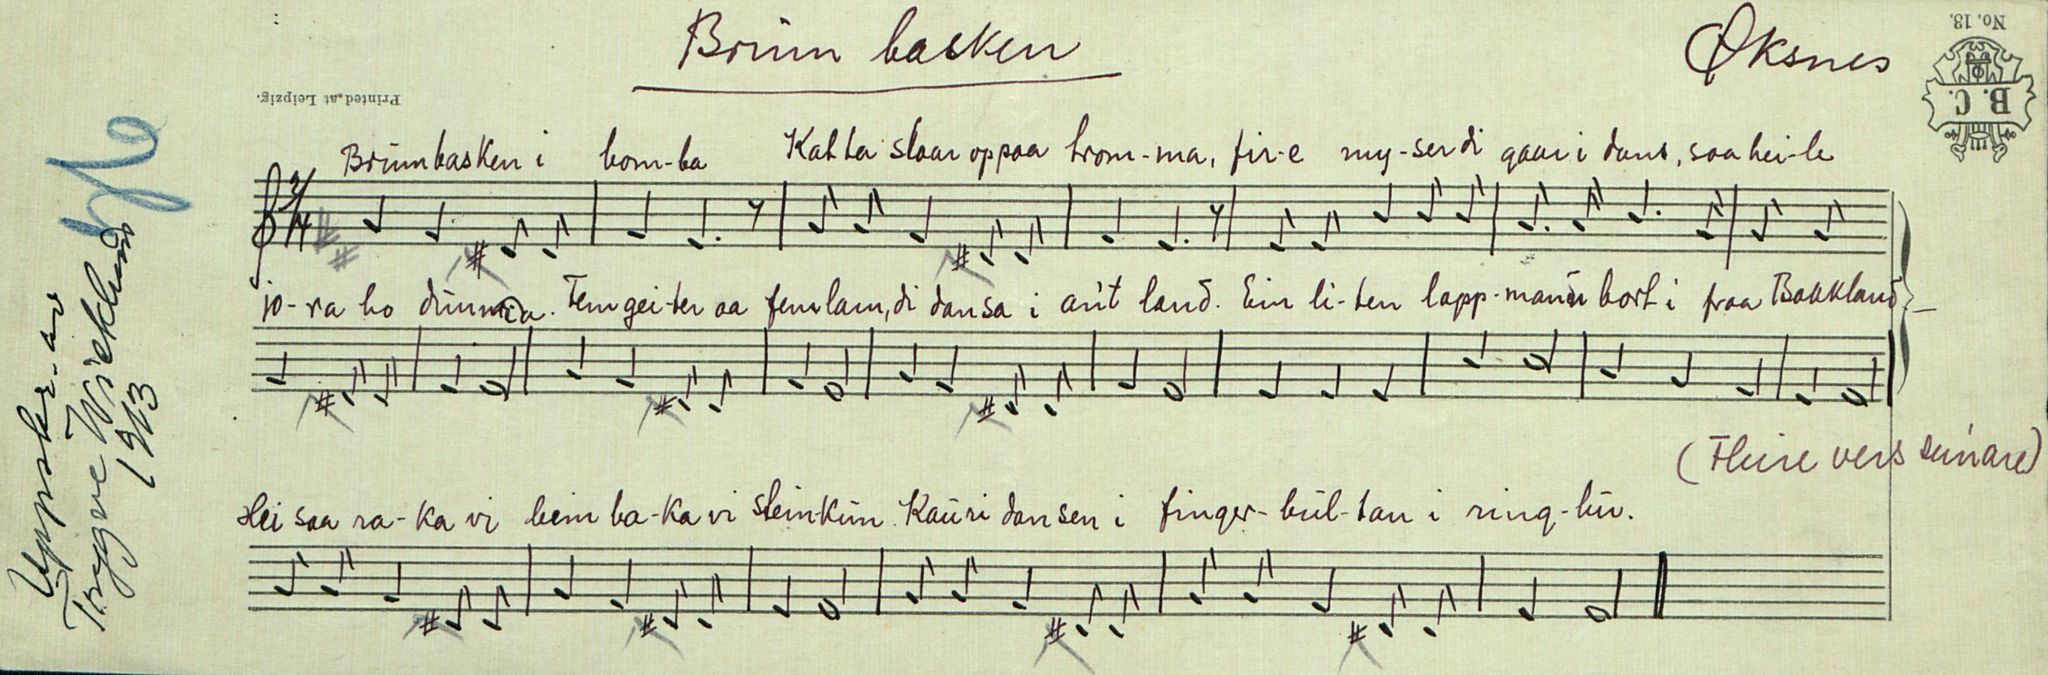 Brumbasken
Øksnes
No. 13.
B. C.
Printed at Leipzig.
Brumbasken i bom-ba Katta slaar oppaa trom-ma, fir-e my-ser di gaar i dans, saa hei-le
3/4
jo-ra ho dunnra. Fem gei-ter aa fem lam, di dansa i ant land. Ein li-ten lapp-mann bort i fraa Bakkland
(Fleire vers seinare)
Hei saa ra-ka vi bein ba-ka vi steinkun. Kauri dansen i finger-bul-tan i ring-
Uppskr. av
Trygve Wiklund
1913